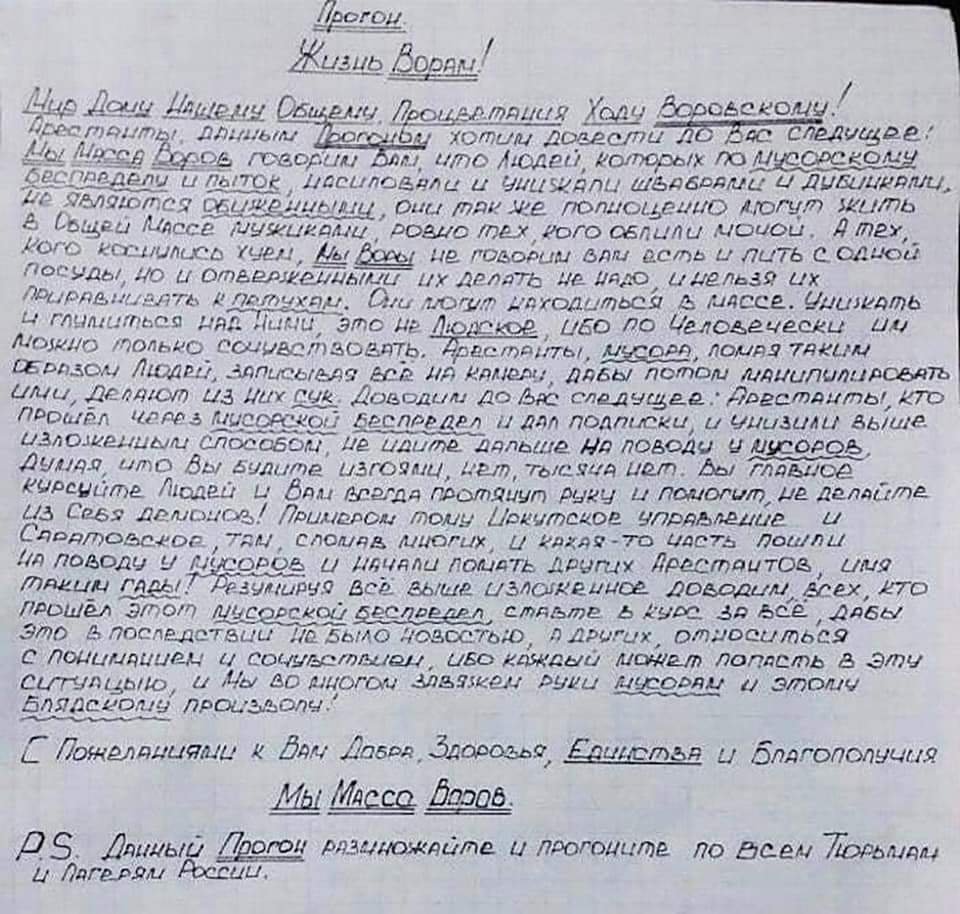 Прогон.
Жизнь Ворам!
Мир Дому Нашему Общему, Процветания Ходу Воровскому!
Арестанты, данным Прогоном хотим довести до Вас следущее:
Мы Масса Воров говорим Вам, что Людей, которых по мусорскому
беспределу и пыток, насиловали и унижали швабрами и дубинками,
не являются обиженными, они так же полноценно могут жить
в Общей Массе мужиками, ровно тех, кого облили мочой. А тех,
кого коснулись хуем, Мы Воры не говорим вам есть и пить с одной
посуды, но и отверженными их делать не надо, и нельзя их
приравнивать к петухам. Они могут находиться в массе. Унижать
и глумиться над Ними, это не Людское, ибо по Человечески им
можно только сочувствовать. Арестанты, мусора, ломая таким
образом Людей, записывая всё на камеру, дабы потом манипулировать
ими, делают из них сук. Доводим до Вас следущее: Арестанты, кто
прошёл через мусорской беспредел и дал подписки, и унизили выше
изложенным способом, не идите дальше на поводу у мусоров,
думая, что Вы будите изгоями, нет, тысяча нет. Вы главное
курсуйте Людей и Вам всегда протянут руку и помогут, не делайте
из Себя демонов! Примером тому Иркутское управление и
Саратовское, там, сломав многих, и какая-то часть пошли
на поводу у мусоров и начали ломать других Арестантов, имя
таким гады! Резумируя всё выше изложенное доводим, всех, кто
прошёл этот мусорской беспредел, ставте в курс за всё, дабы
это в последствии не было новостью, а других, относиться
с пониманием и сочувствием, ибо каждый может попасть в эту
ситуацыю, и Мы во многом завяжем руки мусорам и этому
Блядскому произволу!
С Пожеланиями к Вам Добра, Здоровья, Единства и Благополучия
Мы Масса Воров.
P.S. Данный Прогон размножайте и прогоните по всем Тюрьмам
и Лагерям России.